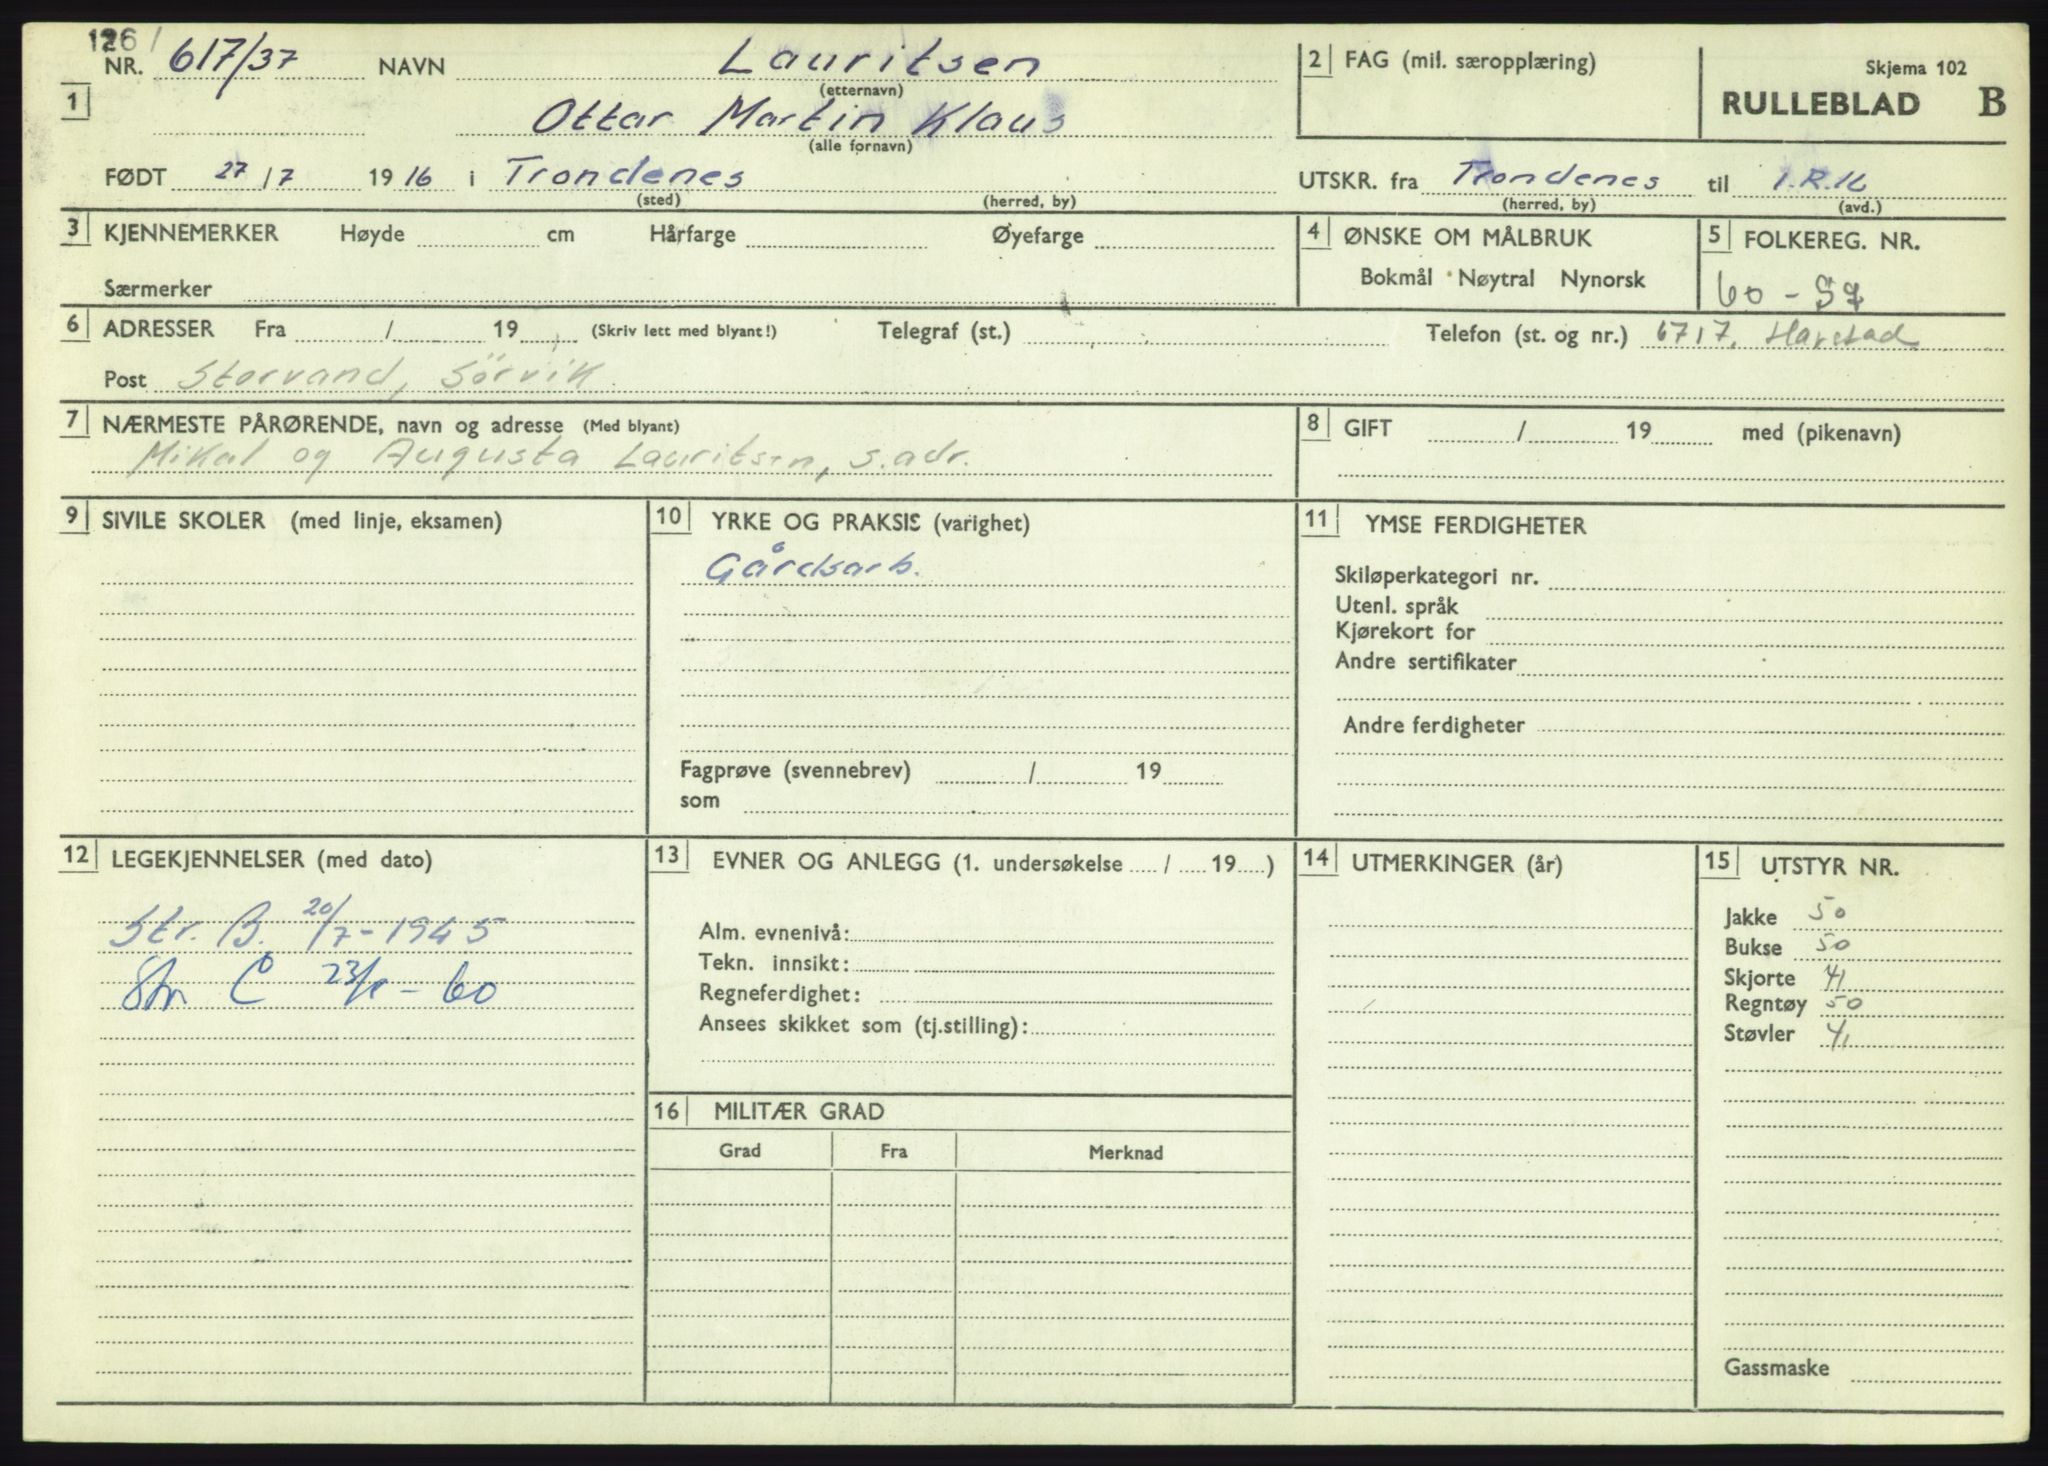 126/
NR. 617/37 NAVN Lauritsen
(etternavn)
1 Ottar Martin Klaus
(alle fornavn)
FØDT 27/7 1916 i Trondenes
(sted) (herred, by)
2 FAG (mil. særopplæring)
Skjema 102
RULLEBLAD B
UTSKR. fra Trondenes til I.R.16
(herred, by) (avd.)
3 KJENNEMERKER Høyde cm Hårfarge Øyefarge
Særmerker
4 ØNSKE OM MÅLBRUK
Bokmål Nøytral Nynorsk
5 FOLKEREG. NR.
60 -
6 ADRESSER Fra / 19 (Skriv lett med blyant!) Telegraf (st.) Telefon (st. og nr.) 6717, Harstad
Post Storvand, Sörvik
7 NÆRMESTE PÅRØRENDE, navn og adresse (Med blyant)
Mikal og Augusta Lauritsen, s. adr.
8 GIFT / 19 med (pikenavn)
9 SIVILE SKOLER (med linje, eksamen)
10 YRKE OG PRAKSIS (varighet)
Gårdsarb.
Fagprøve (svennebrev) / 19
som
11 YMSE FERDIGHETER
Skiløperkategori nr.
Utenl. språk
Kjørekort for
Andre sertifikater
Andre ferdigheter
12 LEGEKJENNELSER (med dato)
Str. B. 20/7-1945
Str C 23/ - 60
13 EVNER OG ANLEGG (1. undersøkelse / 19 )
Alm. evnenivå:
Tekn. innsikt:
Regneferdighet:
Ansees skikket som (tj.stilling):
14 UTMERKINGER (år)
15 UTSTYR NR.
Jakke 50
Bukse 50
Skjorte 41
Regntøy 50
Støvler 41
Gassmaske
16 MILITÆR GRAD
Grad Fra Merknad